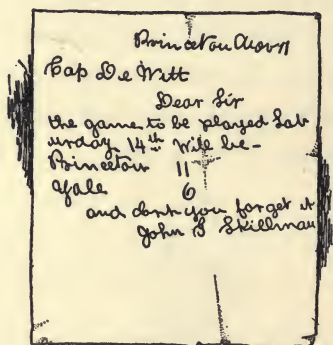 Princeton
Cap De Witt
Dear Sir
the game to be played Sat
urday 14th Will be-
Princeton 11
Yale 6
and dont you forget it
John S Skillman